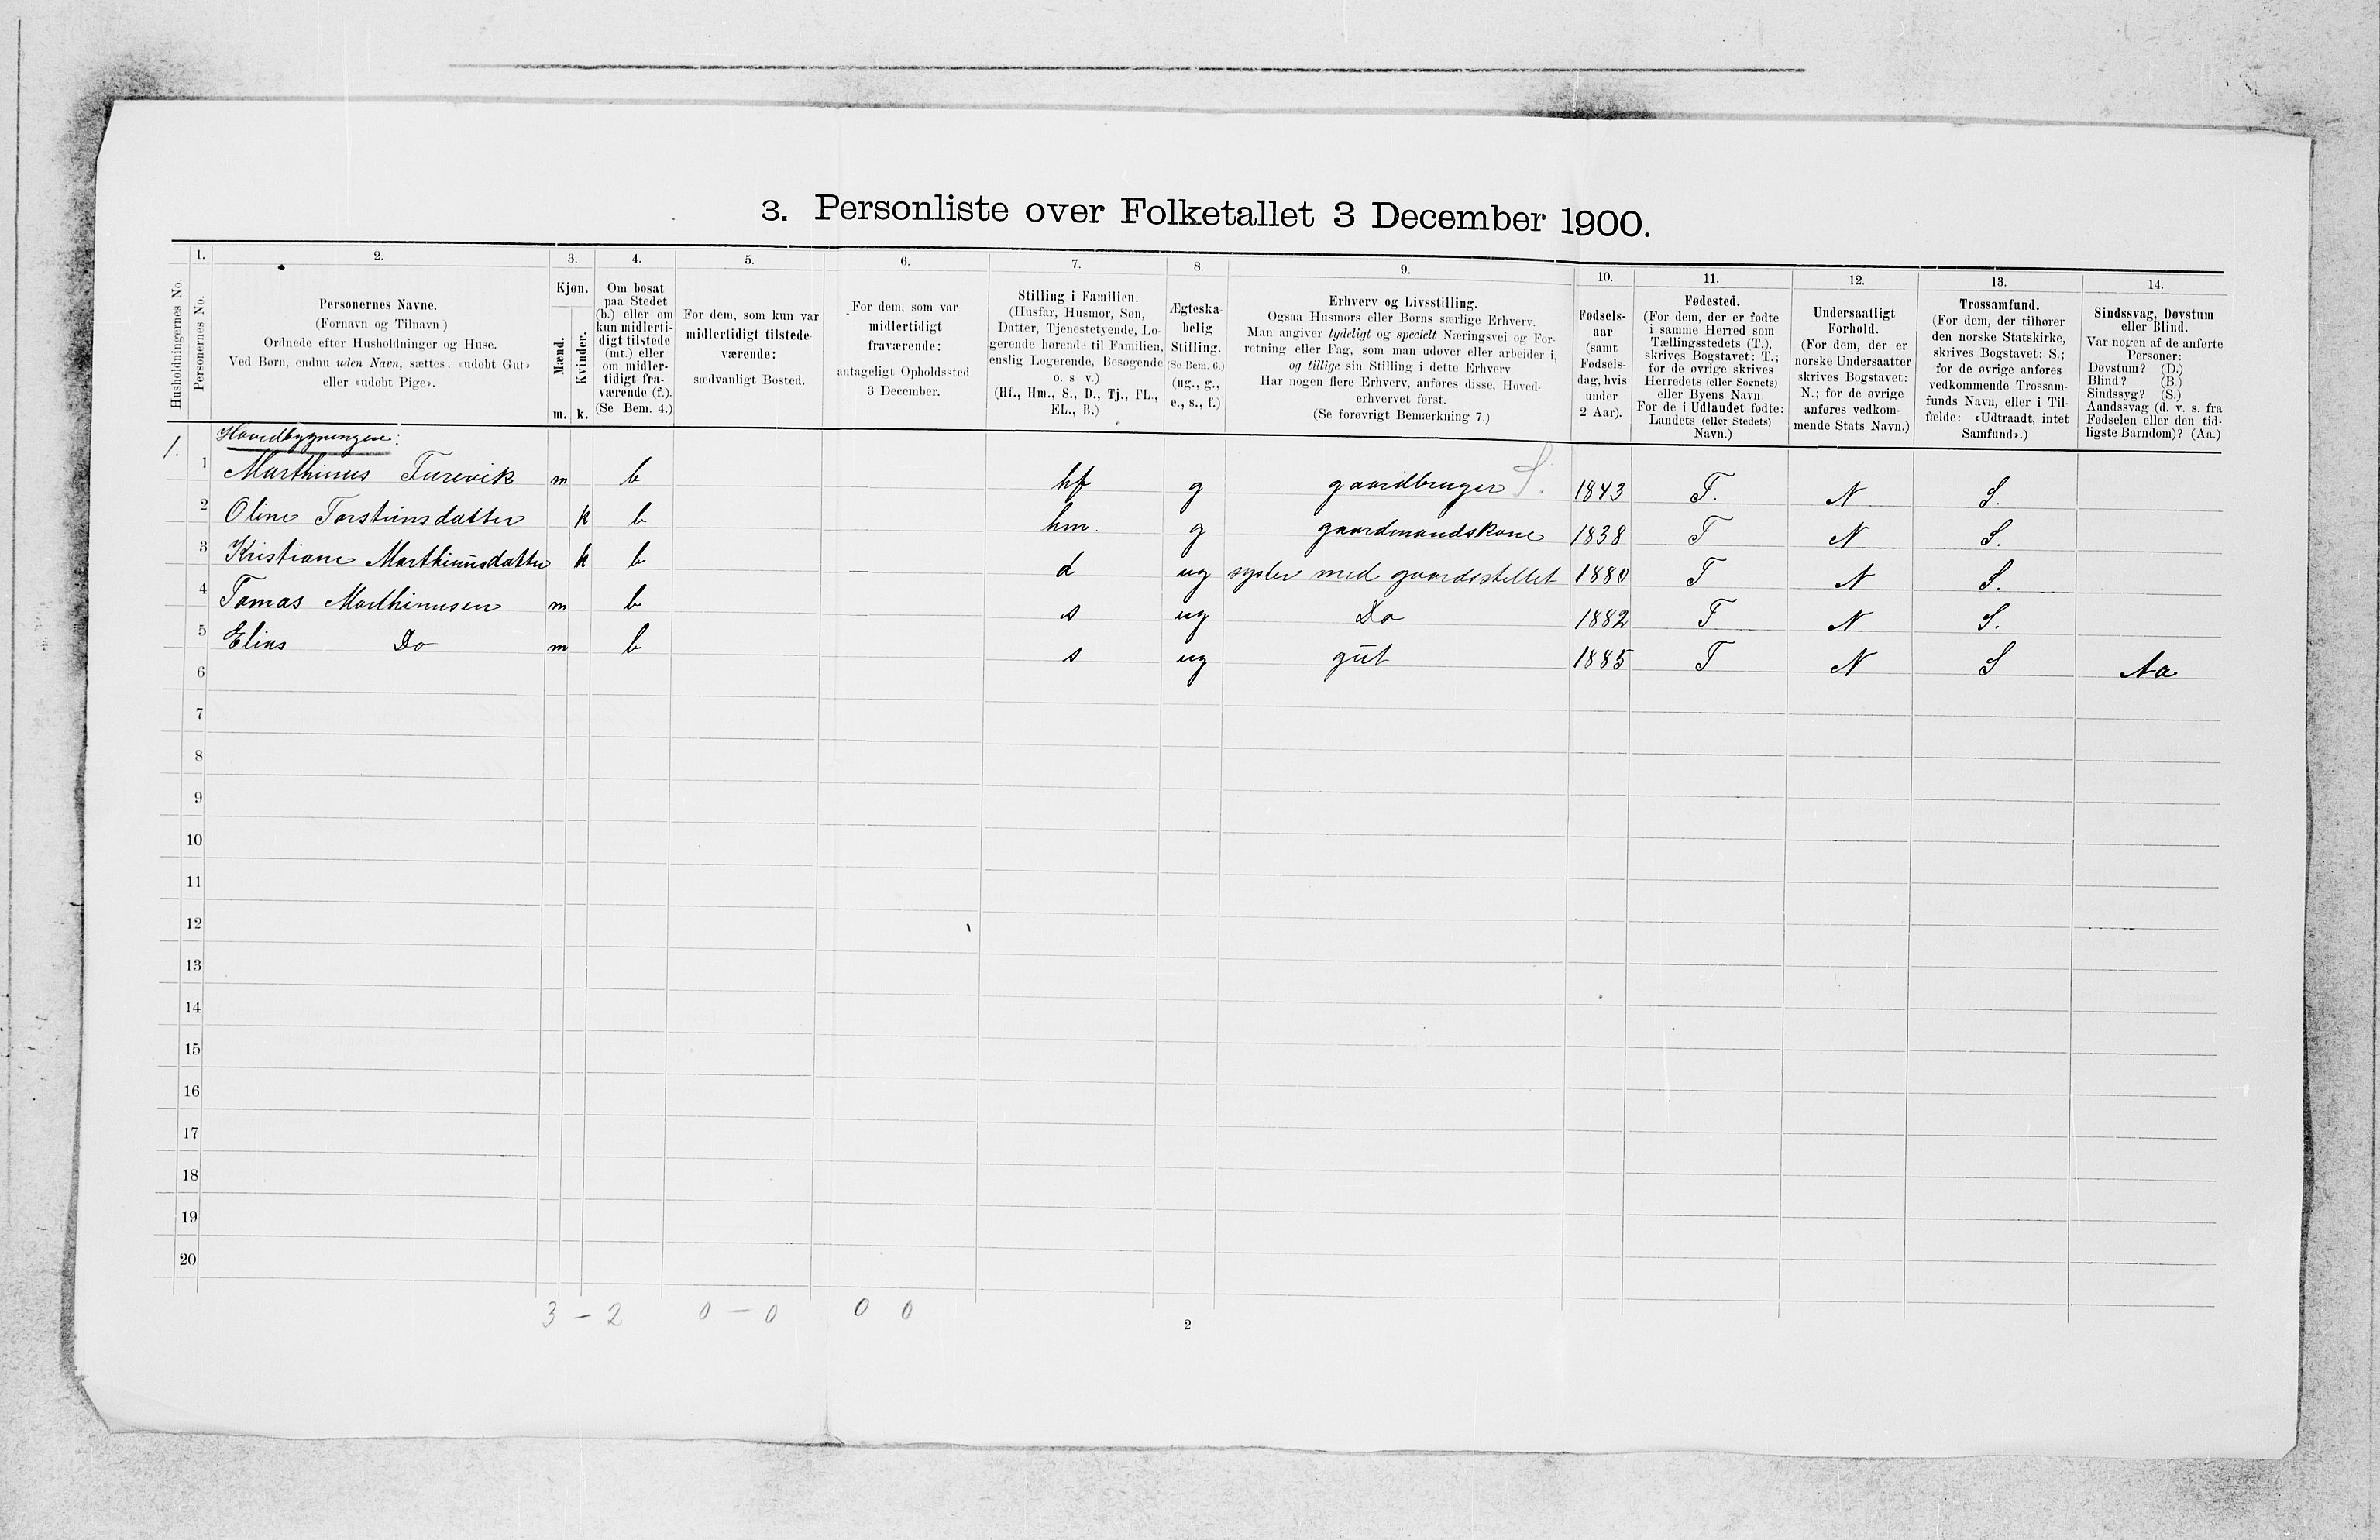 3. Personliste over Folketallet 3 December 1900.
1. 2. 3. 4. 5. 6. 7. 8. 9. 10. 11. 12. 13. 14.
Husholdningernes No.
Personernes No.
Personernes Navne.
(Fornavn og Tilnavn)
Ordnede efter Husholdninger og Huse.
Ved Børn, endnu uden Navn, sættes: «udøbt Gut»
eller «udøbt Pige».
Kjøn.
Mænd.
Kvinder.
m. k.
Om bosat
paa Stedet
(b.) eller om
kun midlerti-
digt tilstede
(mt.) eller
om midler-
tidigt fra-
værende (f.).
(Se Bem. 4.)
For dem, som kun var
midlertidigt tilstede-
værende:
sædvanligt Bosted.
For dem, som var
midlertidigt
fraværende:
antageligt Opholdssted
3 December.
Stilling i Familien.
(Husfar, Husmor, Søn,
Datter, Tjenestetyende, Lo-
gerende hørende til Familien,
enslig Logerende, Besøgende
o. s v.)
(Hf., Hm., S., D., Tj., FL.,
EL., B.)
Ægteska-
belig
Stilling.
(Se Bem. 6.)
(ug., g.,
e., s., f.)
Erhverv og Livsstilling.
Ogsaa Husmors eller Børns særlige Erhverv.
Man angiver tydeligt og specielt Næringsvei og For-
retning eller Fag, som man udøver eller arbeider i,
og tillige sin Stilling i dette Erhverv.
Har nogen flere Erhverv, anføres disse, Hoved-
erhvervet først.
(Se forøvrigt Bemærkning 7.)
Fødsels-
aar
(samt
Fødsels-
dag, hvis
under
2 Aar).
Fødested.
(For dem, der er fødte
i samme Herred som
Tællingsstedets (T.),
skrives Bogstavet: T.;
for de øvrige skrives
Herredets (eller Sognets)
eller Byens Navn.
For de i Udlandet fødte:
Landets (eller Stedets)
Navn.)
Undersaatligt
Forhold.
(For dem, der er
norske Undersaatter
skrives Bogstavet:
N.; for de øvrige
anføres vedkom-
mende Stats Navn.)
Trossamfund.
(For dem, der tilhører
den norske Statskirke,
skrives Bogstavet: S.;
for de øvrige anføres
vedkommende Trossam-
funds Navn, eller i Til-
fælde: «Udtraadt, intet
Samfund».)
Sindssvag, Døvstum
eller Blind.
Var nogen af de anførte
Personer:
Døvstum? (D.)
Blind? (B.)
Sindssyg? (S.)
Aandssvag (d. v. s. fra
Fødselen eller den tid-
ligste Barndom)? (Aa.)
1. Hovedbygningen:
1 Marthinus Turevik m b hf g gaardbruger S. 1843 T. N S.
2 Oline Torstensdatter k b hm. g gaardmandskone 1838 T N S.
3 Kristiane Marthinusdatter k b d ug sysler med gaardstellet 1880 T N S.
4 Tomas Marthinusen m b s ug Do 1882 T N S.
5 Elias Do m b s ug gut 1885 T N S Aa
6
7
8
9
10
11
12
13
14
15
16
17
18
19
20
3 - 2 0 - 0 0 0
2